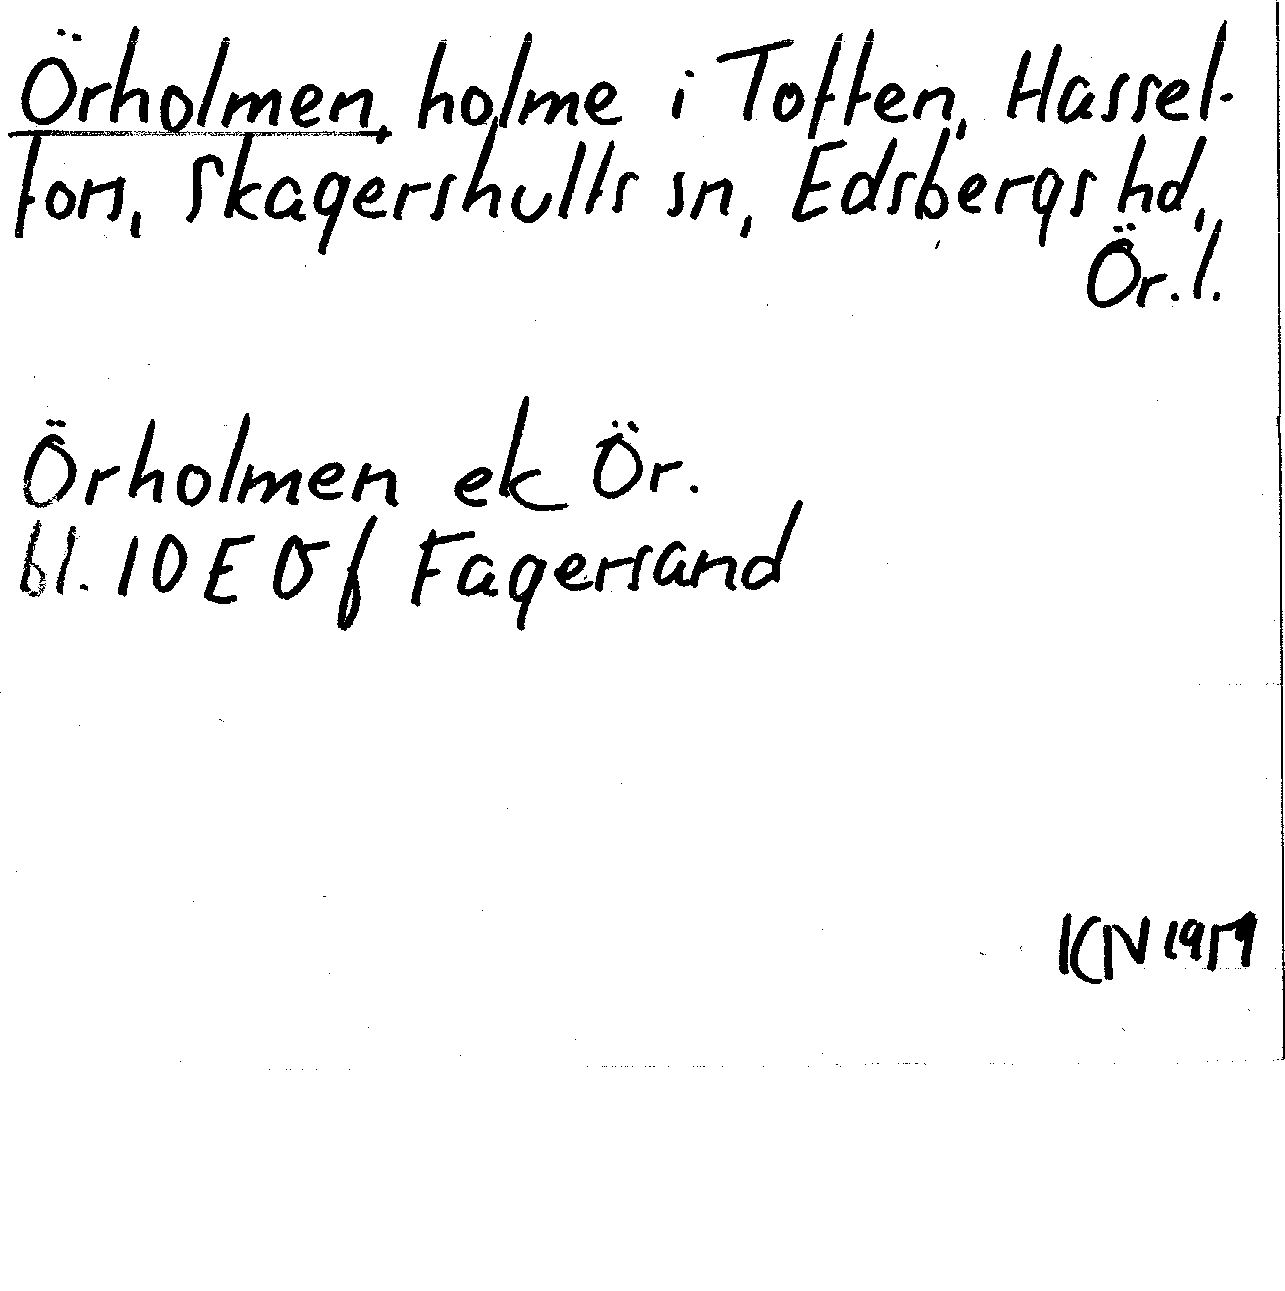 Örholmen, holme i Toften, Hassel-
fors, Skagershults sn, Edsbergs hd,
Ör. l.
Örholmen ek Ör.
bl. 10 E Öf Fagersand
KN 1959